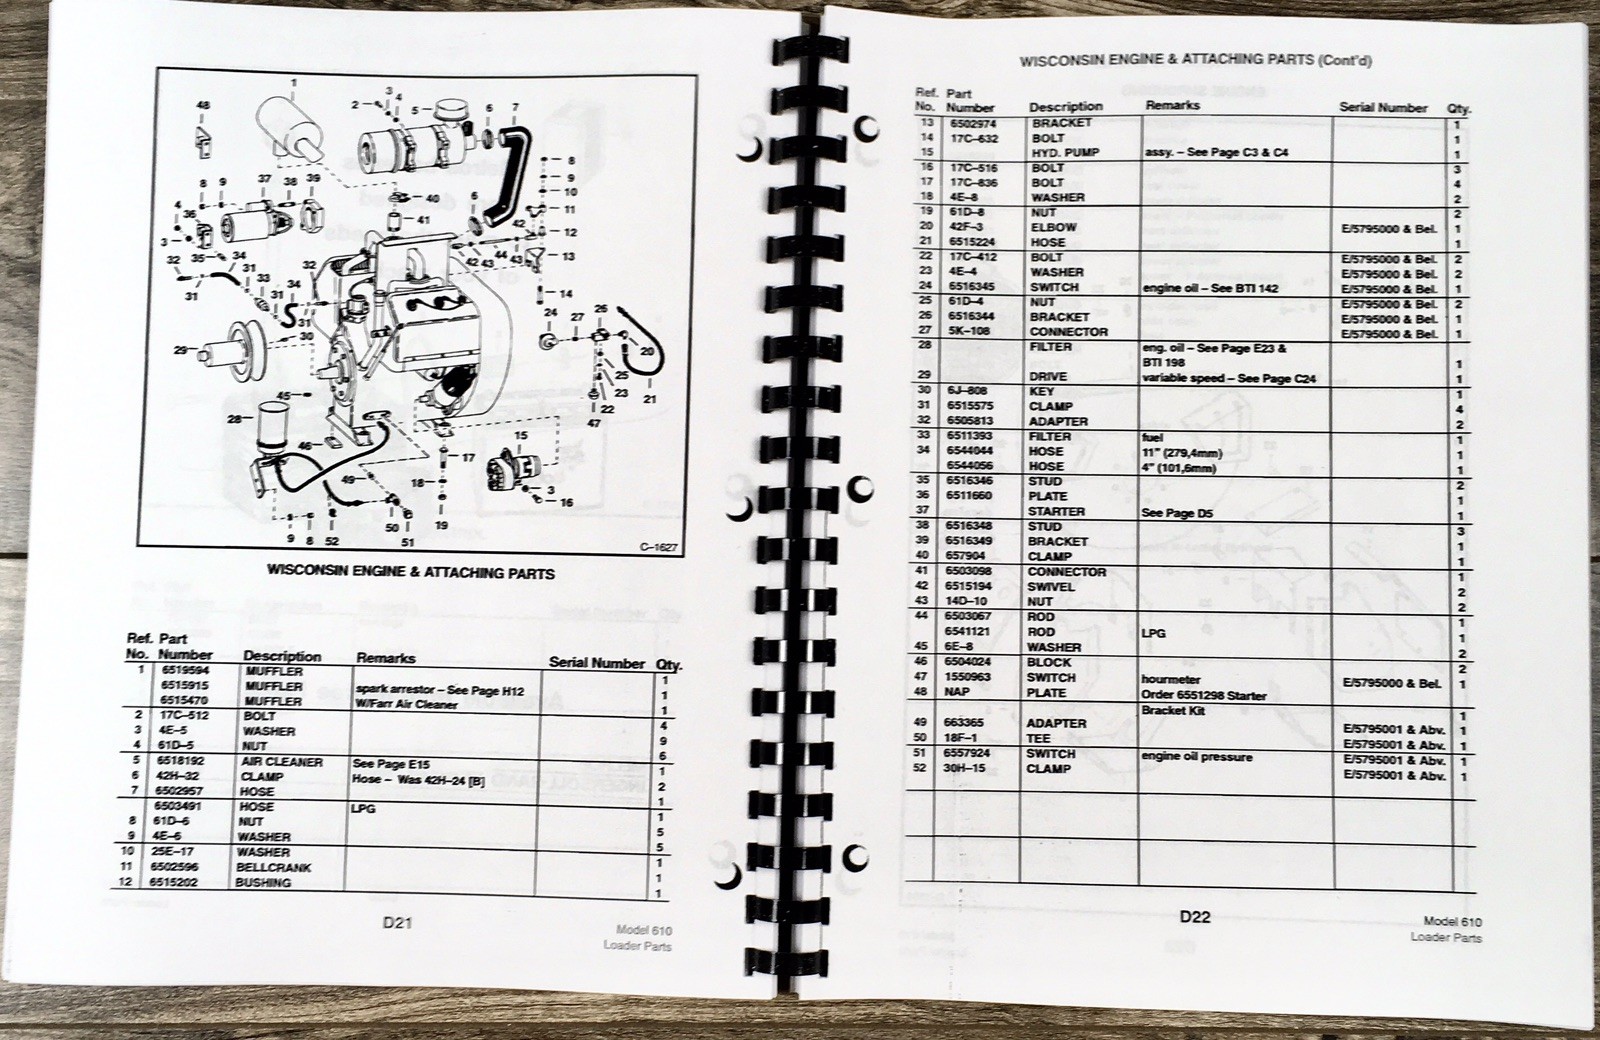 C-1627
WISCONSIN ENGINE & ATTACHING PARTS
Ref. Part
No. Number Description Remarks Serial Number Qty.
1 6519594 MUFFLER 1
6515915 MUFFLER spark arrestor – See Page H12 1
6515470 MUFFLER W/Farr Air Cleaner 1
2 17C–512 BOLT 4
3 4E–5 WASHER 9
4 61D–5 NUT 6
5 6518192 AIR CLEANER See Page E15 1
6 42H–32 CLAMP Hose – Was 42H–24 [B] 2
7 6502957 HOSE 1
6503491 HOSE LPG 1
8 61D–6 NUT 5
9 4E–6 WASHER 5
10 25E–17 WASHER 1
11 6502596 BELLCRANK 1
12 6515202 BUSHING 1
D21
Model 610
Loader Parts
WISCONSIN ENGINE & ATTACHING PARTS (Cont'd)
Ref. Part
No. Number Description Remarks Serial Number Qty.
13 6502974 BRACKET 1
14 17C–632 BOLT 1
15 HYD. PUMP assy. – See Page C3 & C4 1
16 17C–516 BOLT 3
17 17C–836 BOLT 4
18 4E–8 WASHER 2
19 61D–8 NUT 2
20 42F–3 ELBOW E/5795000 & Bel. 1
21 6515224 HOSE 1
22 17C–412 BOLT E/5795000 & Bel. 2
23 4E–4 WASHER E/5795000 & Bel. 2
24 6516345 SWITCH engine oil – See BTI 142 E/5795000 & Bel. 1
25 61D–4 NUT E/5795000 & Bel. 2
26 6516344 BRACKET E/5795000 & Bel. 1
27 5K–108 CONNECTOR E/5795000 & Bel. 1
28 FILTER eng. oil – See Page E23 &
BTI 198 1
29 DRIVE variable speed – See Page C24 1
30 6J–808 KEY 1
31 6515575 CLAMP 4
32 6505813 ADAPTER 2
33 6511393 FILTER fuel 1
34 6544044 HOSE 11" (279,4mm) 1
6544056 HOSE 4" (101,6mm) 1
35 6516346 STUD 2
36 6511660 PLATE 1
37 STARTER See Page D5 1
38 6516348 STUD 3
39 6516349 BRACKET 1
40 657904 CLAMP 1
41 6503098 CONNECTOR 1
42 6515194 SWIVEL 2
43 14D–10 NUT 2
44 6503067 ROD 1
6541121 ROD LPG 1
45 6E–8 WASHER 2
46 6504024 BLOCK 2
47 1550963 SWITCH hourmeter E/5795000 & Bel. 1
48 NAP PLATE Order 6551298 Starter
Bracket Kit 1
49 663365 ADAPTER E/5795001 & Abv. 1
50 18F–1 TEE E/5795001 & Abv. 1
51 6557924 SWITCH engine oil pressure E/5795001 & Abv. 1
52 30H–15 CLAMP E/5795001 & Abv. 1
D22
Model 610
Loader Parts